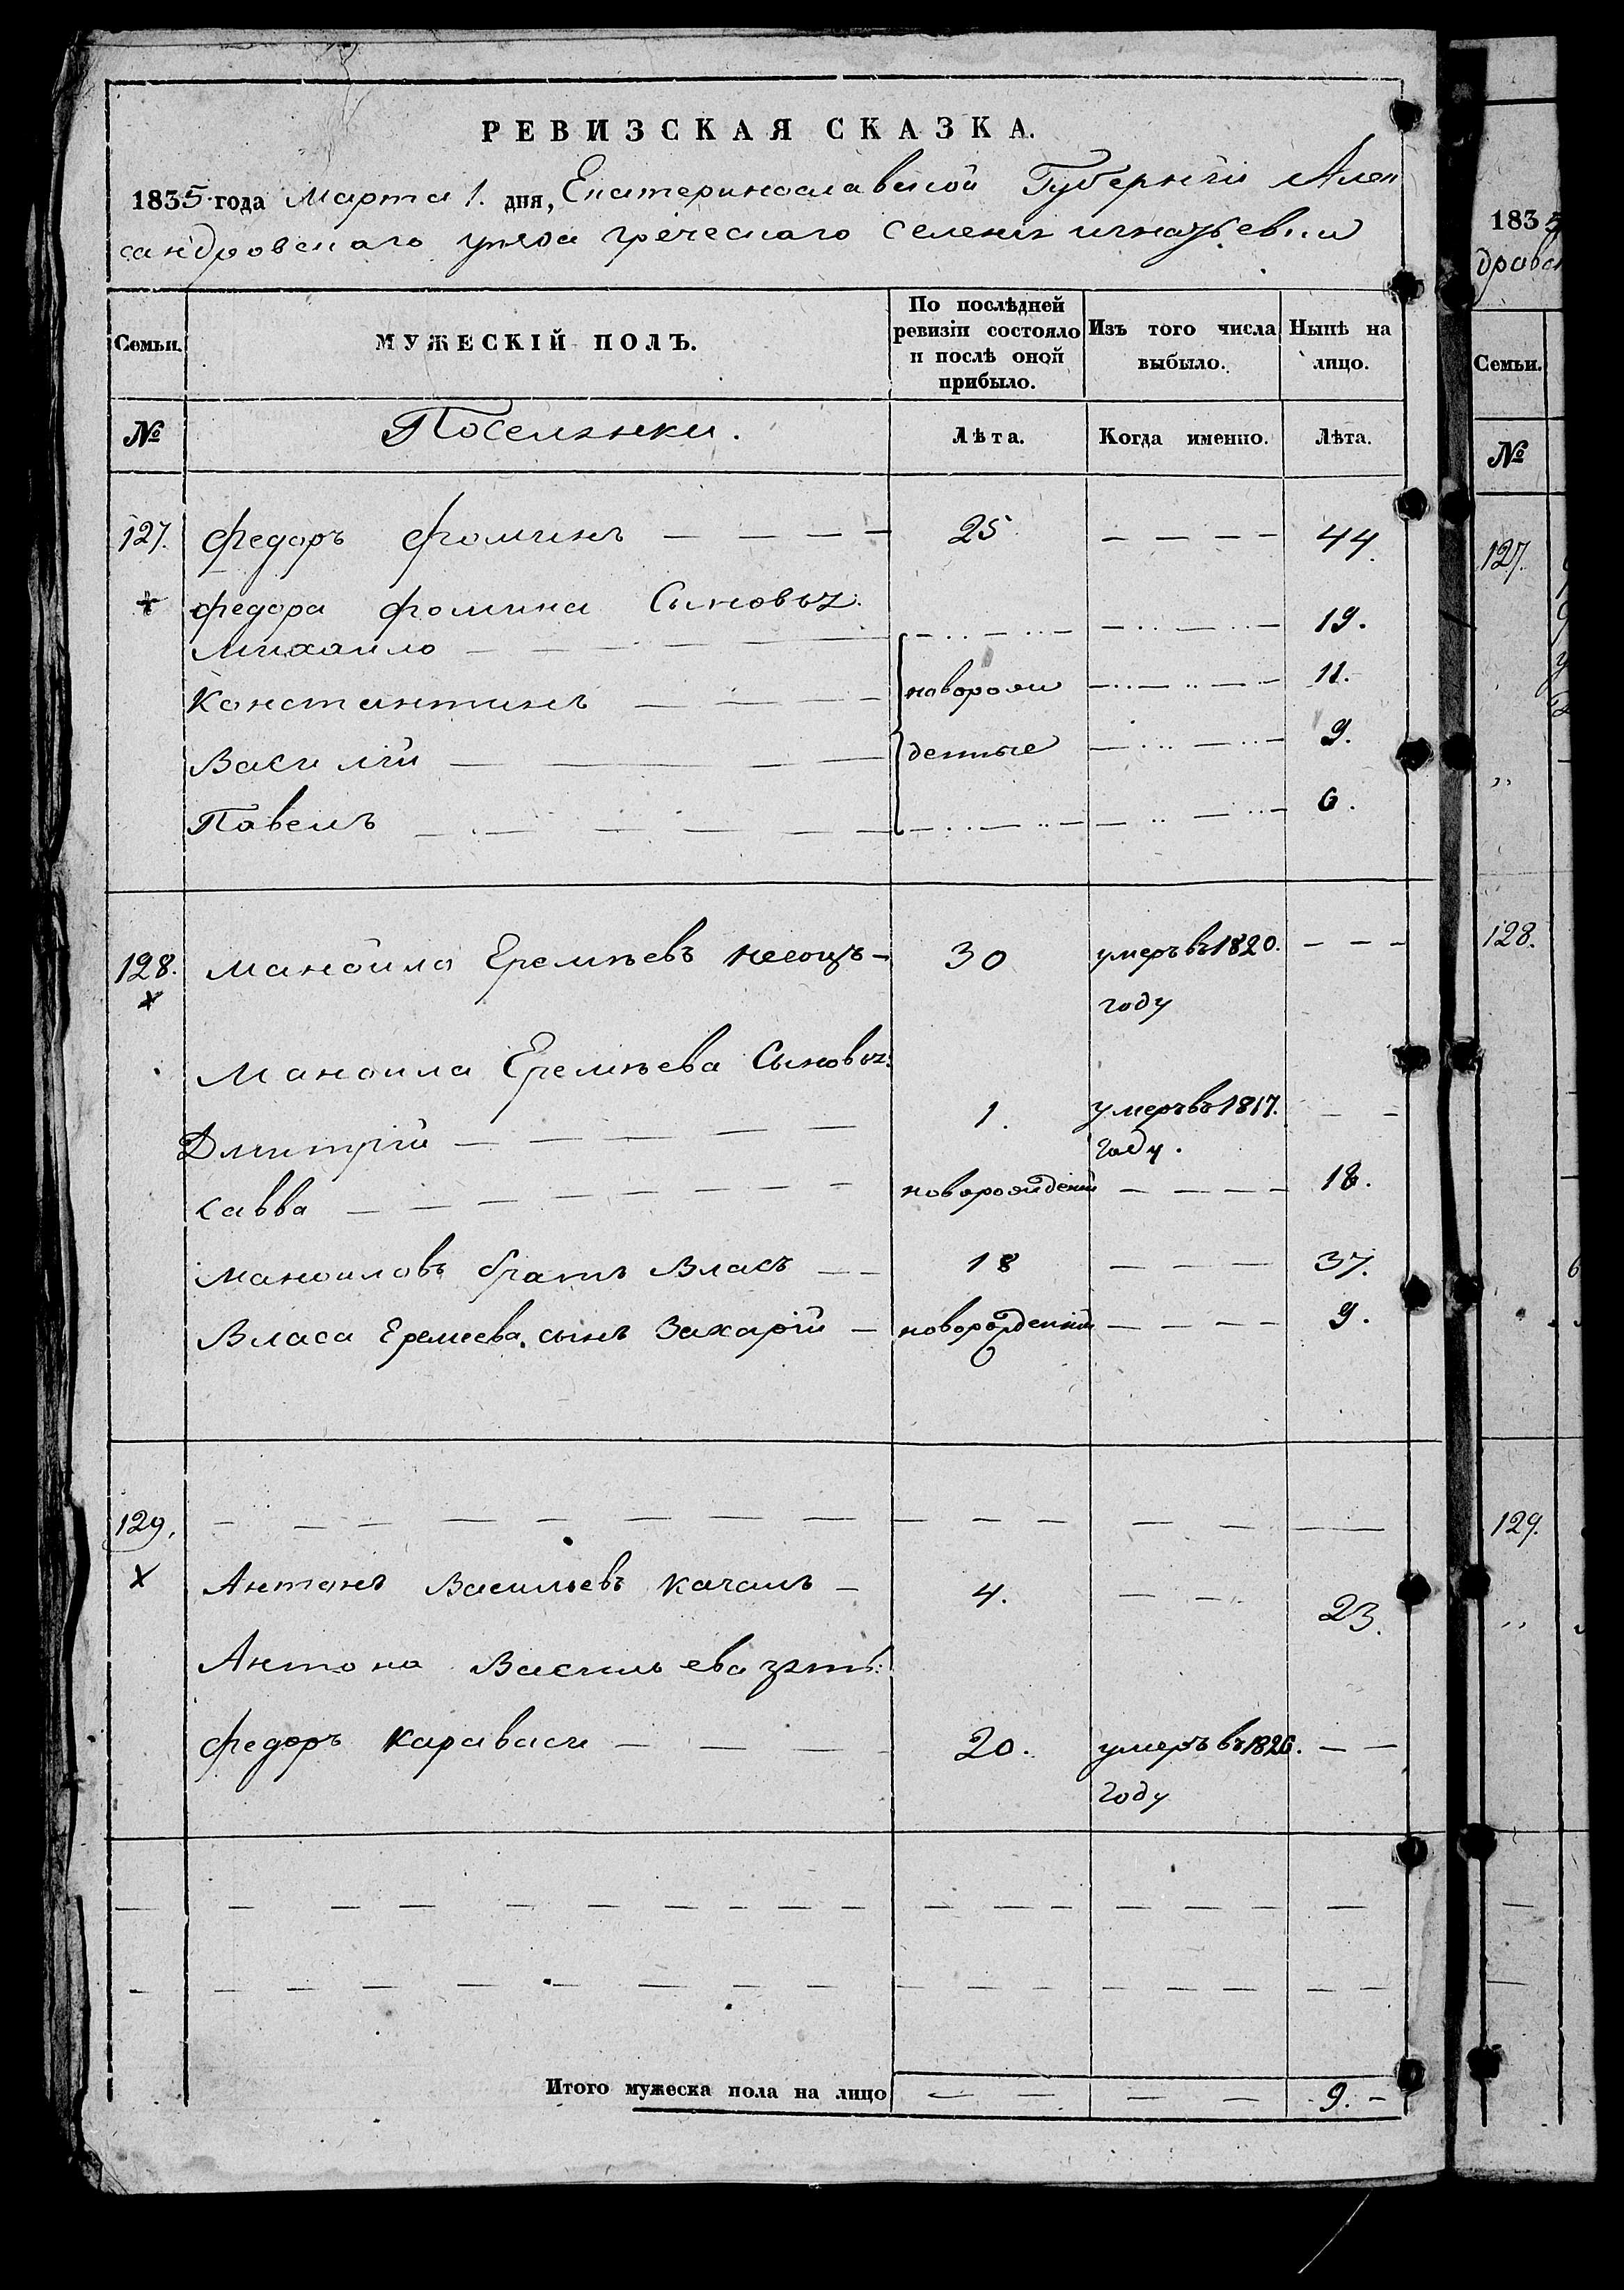 РЕВИЗСКАЯ СКАЗКА.
1835 года Марта 1. дня, Екатеринославской Губерніи Алек
сандровскаго уѣзда греческаго селенія игнатьевки
Семьи. МУЖЕСКІЙ ПОЛЪ. По послѣдней ревизіи состояло и послѣ оной прибыло. Изъ того числа выбыло. Нынѣ на лицо.
№ Поселяики. Лѣта. Когда именно. Лѣта.
127. Федоръ Фоминъ — — — — 25 — — — — 44.
Федора Фомина Сыновья:
Михаило — — — — — — — — 19.
Константинъ — — — — новорож — — — — 11.
Василій — — — — денные — — — — 9.
Павелъ — — — — — — — — 6.
128. Маноила Еремѣевъ 30 умеръ въ 1820. — — —
году
Маноила Еремѣева Сыновья:
Дмитрій — — — — — 1. умеръ въ 1817. — —
году.
Савва — — — — — — — новорожденый — — — — 18.
Маноиловъ братъ Власъ — — 18 — — — — 37.
Власа Еремеева сынъ Захарій — новорожденный — — — — 9.
129. — — — — — — — — — — — — — —
Антонъ Васильевъ качалъ — 4. — — 23.
Антона Васильева зять:
Федоръ Караваси — — — — 20. умеръ въ 1826. — —
году
Итого мужеска пола на лицо — — — — 9. –
1835
дровск
Семьи.
№
127.
128.
129.